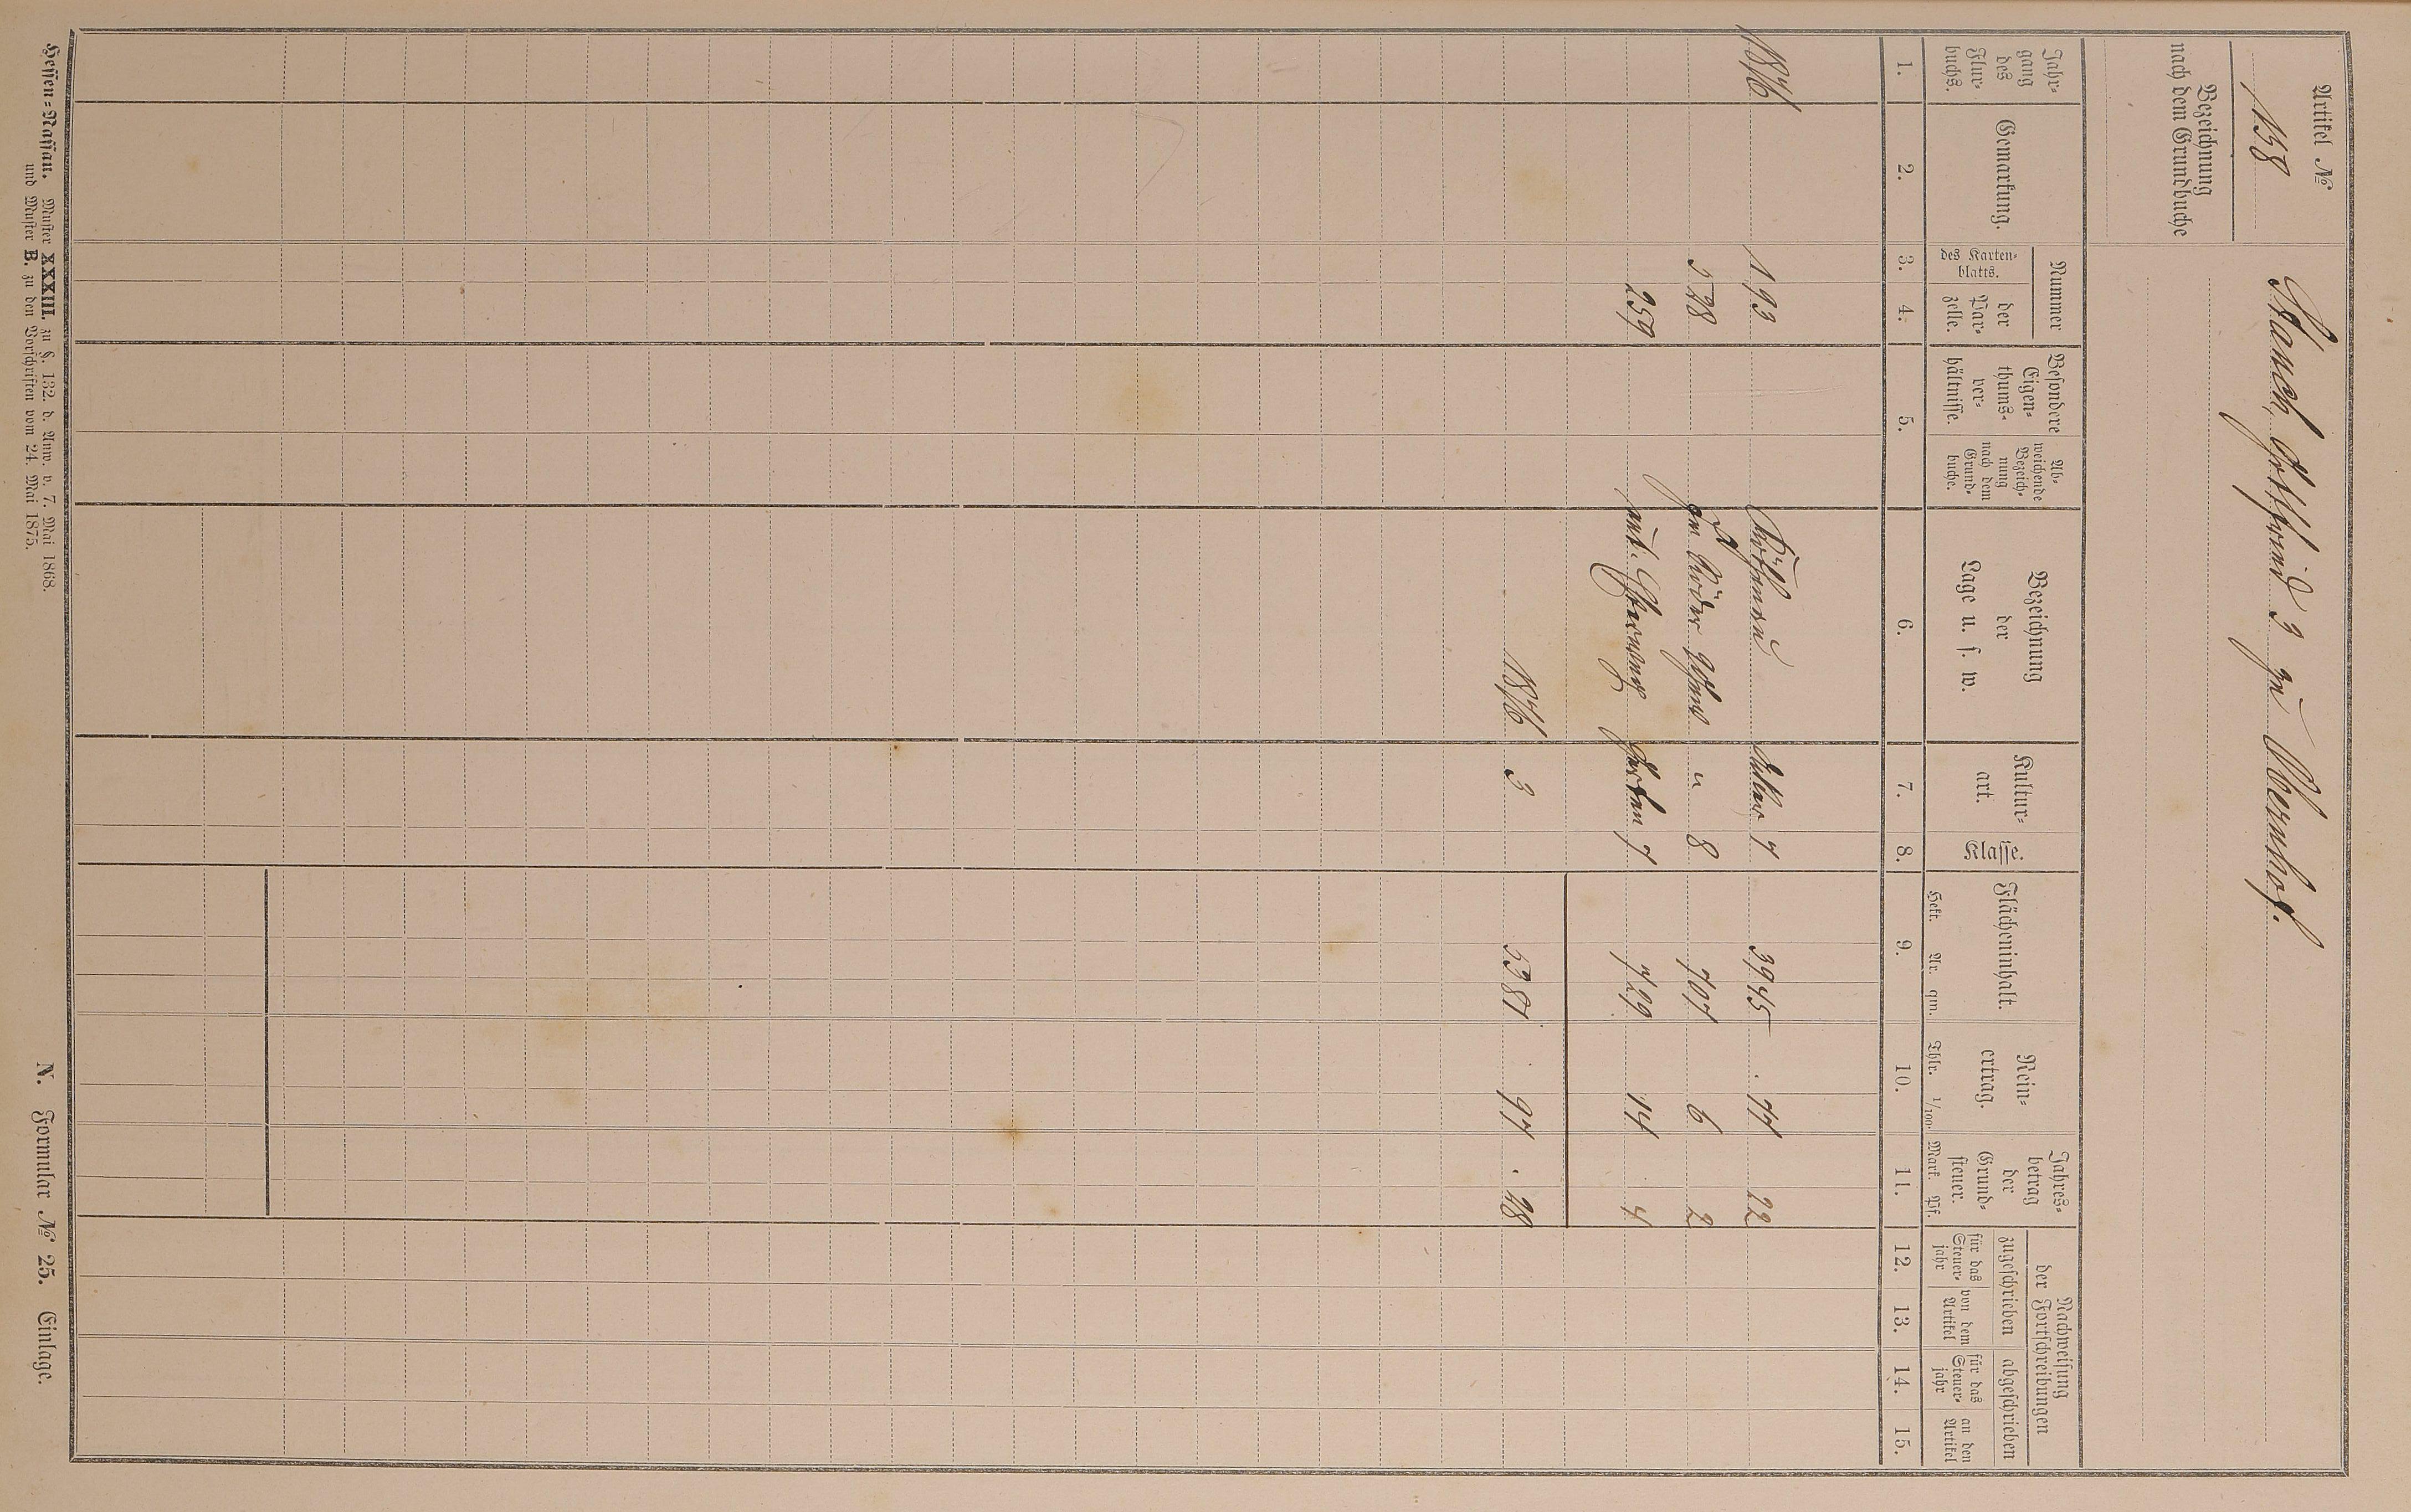 Artikel №
158
Bezeichnung
nach dem Grundbuche
Stauch, 3 zu Obernhof.
Jahr-
gang
des
Flur-
buchs.
Gemarkung.
Nummer
des Karten-
blatts.
der
Par-
zelle.
Besondere
Eigen-
thums-
ver-
hältnisse.
Ab-
weichende
Bezeich-
nung
nach dem
Grund-
buche.
Bezeichnung
der
Lage u. s. w.
Kultur-
art.
Klasse.
Flächeninhalt.
Hekt. Ar. qm.
Rein-
ertrag.
Thlr. 1/100.
Jahres-
betrag
der
Grund-
steuer.
Mark Pf.
Nachweisung
der Fortschreibungen
zugeschrieben
abgeschrieben
für das
Steuer-
jahr
von dem
Artikel
für das
Steuer-
jahr
an den
Artikel
1. 2. 3. 4. 5. 6. 7. 8. 9. 10. 11. 12. 13. 14. 15.
1876 1 93 Acker 7 39 45 . 77 22
5 " 8 7 07 6 2
259 Garten 7 7 29 14 4
1876 3 53 81 . 97 . 28
Hessen-Nassau. Muster XXXIII. zu §. 132. d. Anw. v. 7. Mai 1868.
und Muster B. zu den Vorschriften vom 24. Mai 1875.
N. Formular № 25. Einlage.